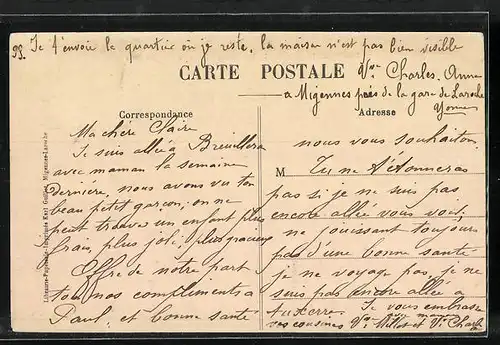 PS. Je t'envoie le quartier où je reste, la maison n'est pas bien visible
CARTE POSTALE
Vve Charles. Anna
a Migennes près de la gare de Laroche
Yonne
Correspondance
Adresse
Ma chère Claire
Je suis allée a
avec maman la semaine
dernière, nous avons vu ton
beau petit garçon, on ne
peut trouver un enfant plus
frais, plus joli, plus gracieux
Offre de notre part
tous nos compliments a
Paul, et bonne santé
nous vous souhaitons.
M
Tu ne t'étonneras
pas si je ne suis pas
encore allée vous voir.
ne jouissant toujours
pas d'une bonne santé
je ne voyage pas, je ne
suis pas encore allée a
Auxerre. Je vous embrasse
vos cousines Vve et Vve Charles
Librairie-Papeterie-Imprimerie Migennes-Laroche